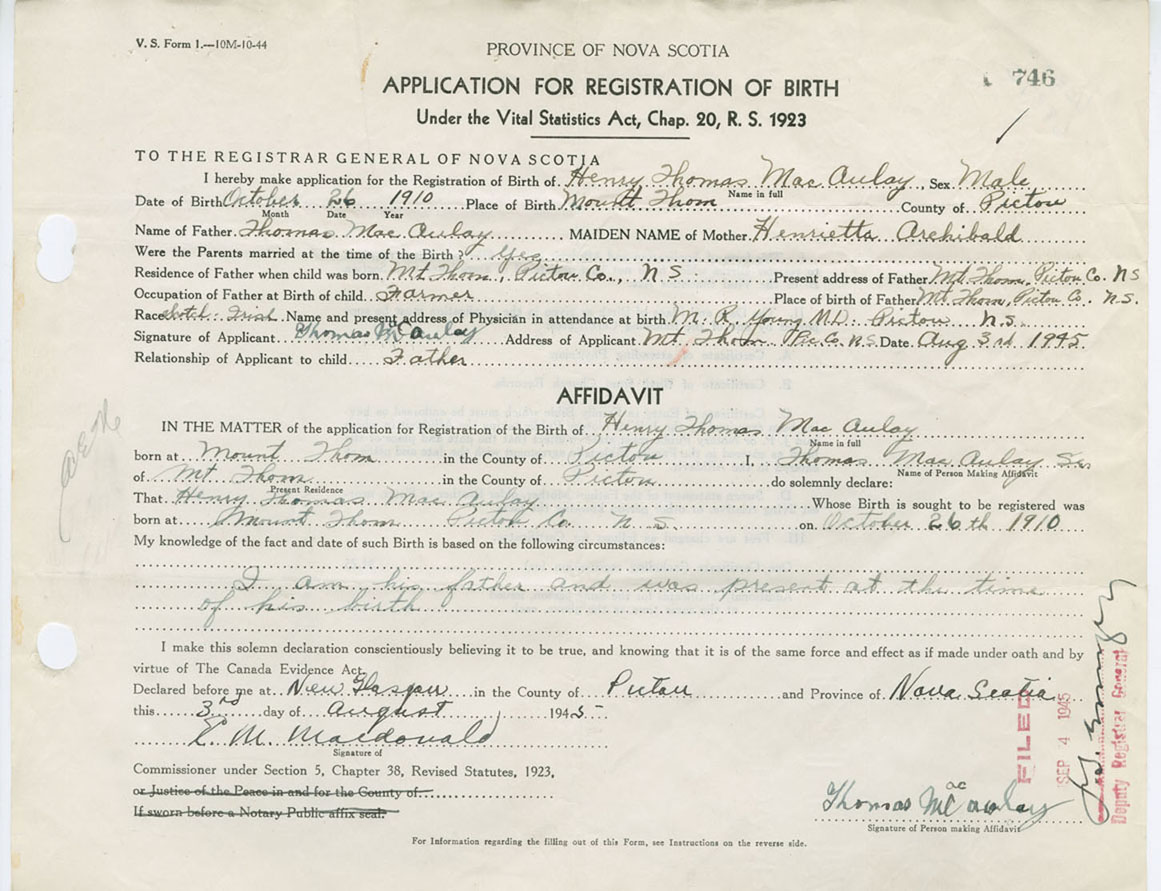 V. S. Form 1.—10M-10-44
PROVINCE OF NOVA SCOTIA
746
APPLICATION FOR REGISTRATION OF BIRTH
Under the Vital Statistics Act, Chap. 20, R. S. 1923
TO THE REGISTRAR GENERAL OF NOVA SCOTIA
I hereby make application for the Registration of Birth of Henry Thomas Mac Aulay, Sex Male
Name in full
Date of Birth October 26 1910 Place of Birth Mount Thom County of Pictou
Month Date Year
Name of Father Thomas Mac Aulay MAIDEN NAME of Mother Henrietta Archibald
Were the Parents married at the time of the Birth? Yes
Residence of Father when child was born Mt Thom, Pictou Co., N S Present address of Father Mt Thom, Pictou Co. N S
Occupation of Father at Birth of child Farmer Place of birth of Father Mt Thom, Pictou Co. N.S.
Race Scotch-Irish Name and present address of Physician in attendance at birth M. R. Young M.D. Pictou N.S.
Signature of Applicant Thomas McAulay Address of Applicant Mt Thom Pic Co. N.S. Date Aug 3rd 1945
Relationship of Applicant to child Father
AFFIDAVIT
IN THE MATTER of the application for Registration of the Birth of Henry Thomas Mac Aulay
Name in full
born at Mount Thom in the County of Pictou I, Thomas Mac Aulay Sr
Name of Person Making Affidavit
of Mt Thom in the County of Pictou do solemnly declare:
Present Residence
That Henry Thomas Mac Aulay Whose Birth is sought to be registered was
born at Mount Thom Pictou Co. N. S. on October 26th 1910
My knowledge of the fact and date of such Birth is based on the following circumstances:
I am his father and was present at the time
of his birth
I make this solemn declaration conscientiously believing it to be true, and knowing that it is of the same force and effect as if made under oath and by
virtue of The Canada Evidence Act.
Declared before me at New Glasgow in the County of Pictou and Province of Nova Scotia
this 3rd day of August 1945
Macdonald
Signature of
Commissioner under Section 5, Chapter 38, Revised Statutes, 1923,
or Justice of the Peace in and for the County of
If sworn before a Notary Public affix seal.
Thomas McAulay
ac
Signature of Person making Affidavit
For Information regarding the filling out of this Form, see Instructions on the reverse side.
FILED
SEP 4 1945
Deputy Registrar General